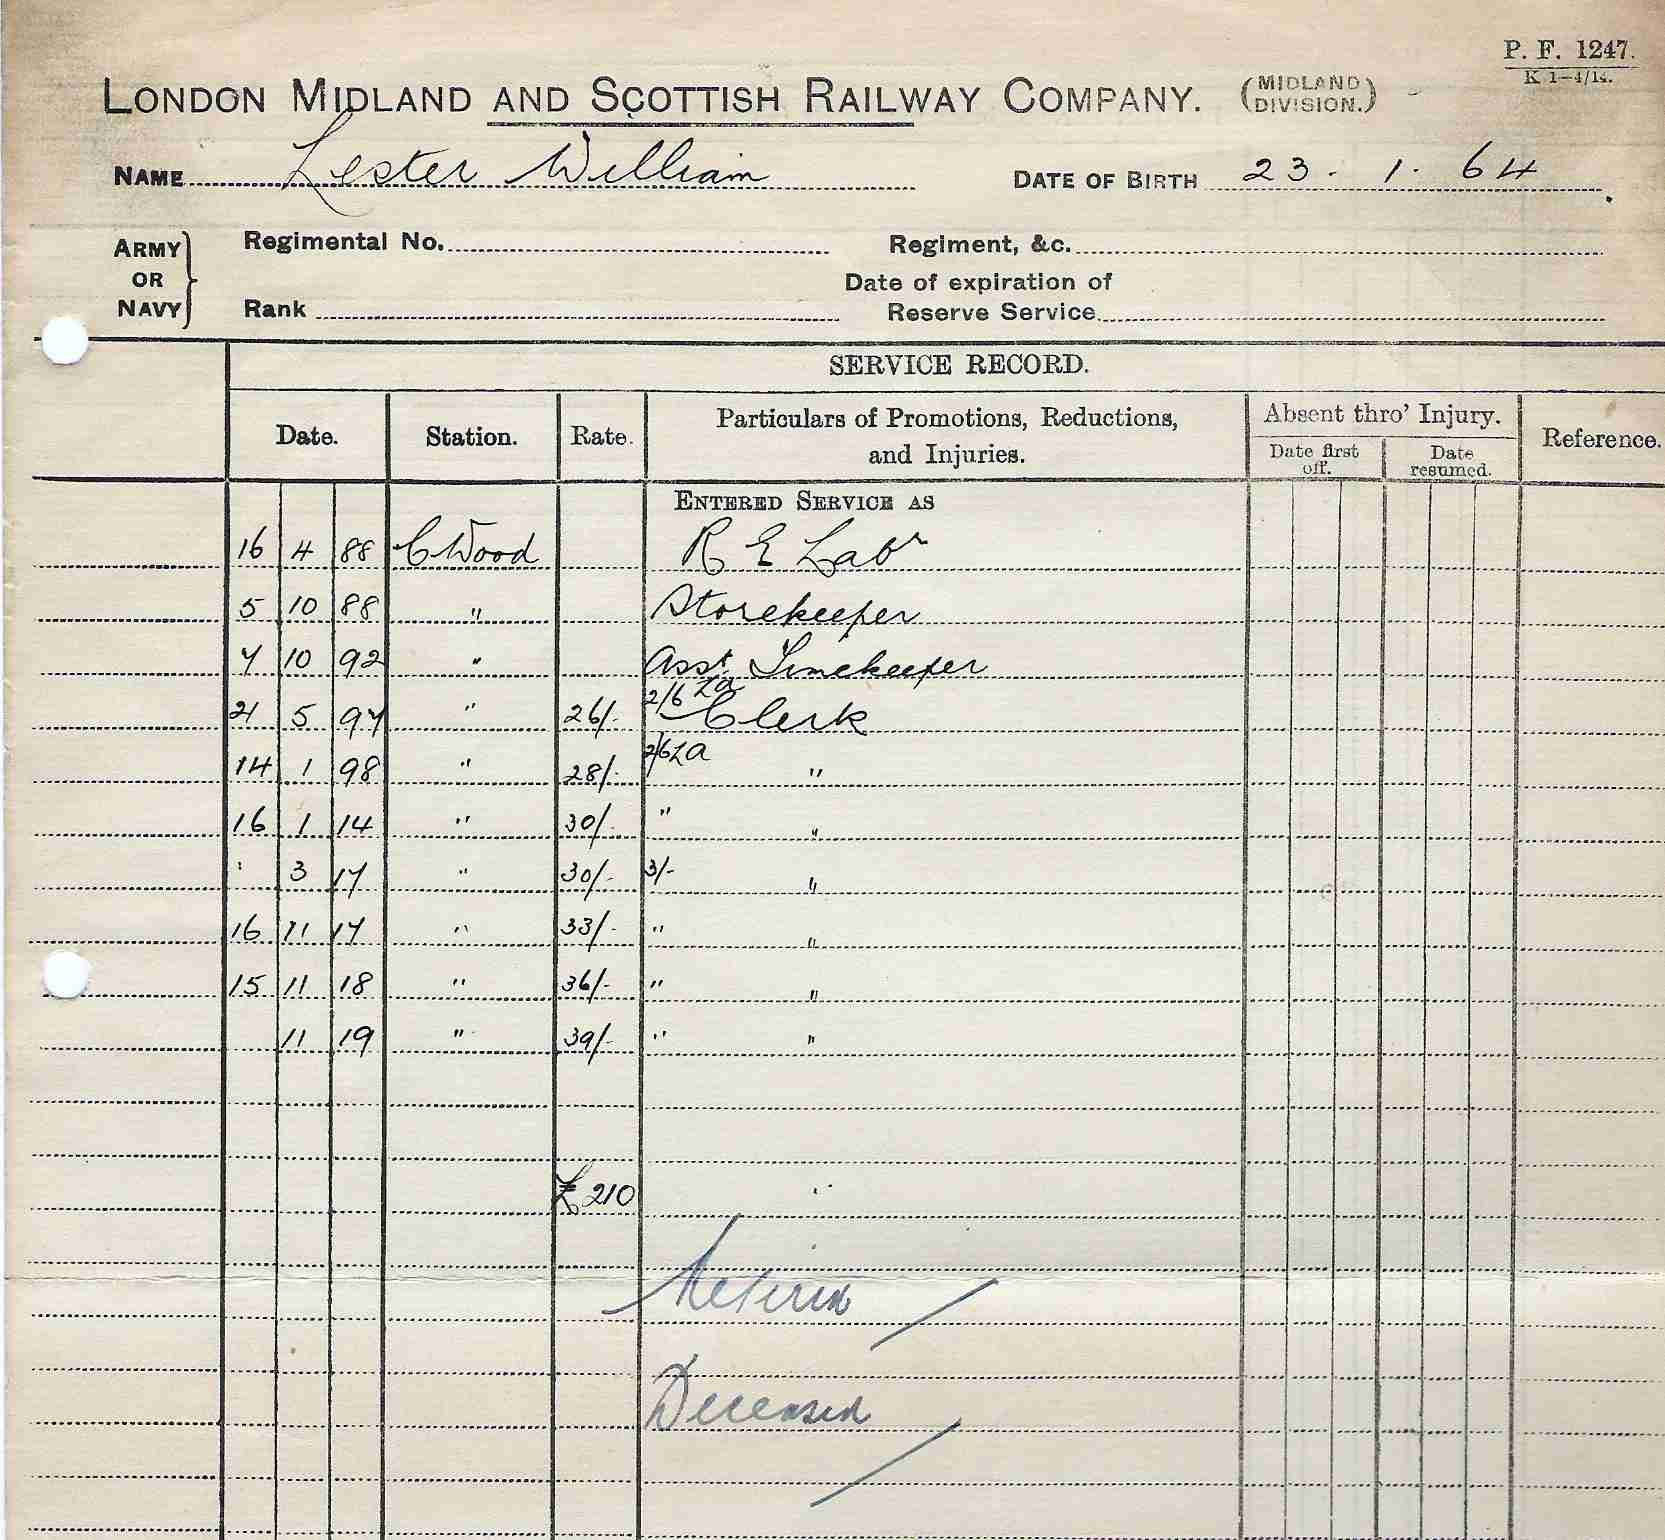 P. F. 1247.
K 1-4/14.
LONDON MIDLAND AND SCOTTISH RAILWAY COMPANY. (MIDLAND DIVISION.)
NAME Lester William DATE OF BIRTH 23 . 1 . 64
ARMY OR NAVY
Regimental No. Regiment, &c.
Rank Date of expiration of Reserve Service
SERVICE RECORD.
Date. Station. Rate. Particulars of Promotions, Reductions, and Injuries. Absent thro' Injury. Reference.
Date first off. Date resumed.
ENTERED SERVICE AS
16 4 88 C Wood R E Labr
5 10 88 " Storekeeper
7 10 92 " Asst Timekeeper
21 5 97 " 26/- 2/6 La Clerk
14 1 98 " 28/- 2/6 La "
16 1 14 " 30/- " "
3 17 " 30/- 3/- "
16 11 17 " 33/- " "
15 11 18 " 36/- " "
11 19 " 39/- " "
£ 210 "
Retired
Deceased